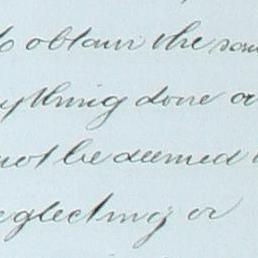 to obtain the
thing done or
not be deemed
neglecting or